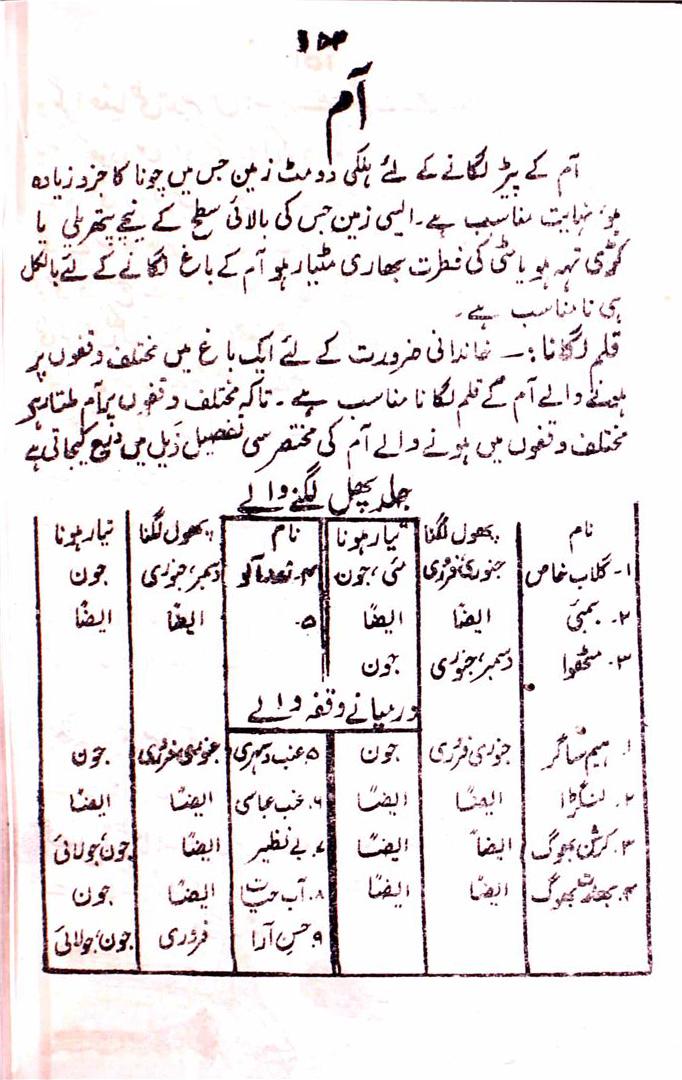 ۱۵۳
آم
آم کے پیڑ لگانے کے لئے ہلکی دومٹ زمین جس میں چونا کا جزو زیادہ
ہو، نہایت مناسب ہے۔ ایسی زمین جس کی بالائی سطح کے نیچے پتھریلی یا
کوڑی تہہ ہو یا مٹی کی فطرت بھاری مٹیار ہو آم کے باغ لگانے کے لئے بالکل
ہی نامناسب ہے۔
قلم لگانا:۔ خاندانی ضرورت کے لئے ایک باغ میں مختلف وقفوں پر
ہونے والے آم کے قلم لگانا مناسب ہے۔ تاکہ مختلف وقفوں پر آم ملتا رہے
مختلف وقفوں میں ہونے والے آم کی مختصر سی تفصیل ذیل میں دیع کیجاتی ہے
جلد پھل لگنے والے
نام پھول لگنا تیار ہونا نام پھول لگنا تیار ہونا
۱۔ گلاب خاص جنوری، فروری مئی، جون ۴۔ دسمبر، جنوری جون
۲۔ بمبئی ایضاً ایضاً ۵۔ ایضاً ایضاً
۳۔ مٹھوا دسمبر، جنوری جون
درمیانے وقفہ والے
۱۔ ہیم ساگر جنوری فروری جون ۵۔ عنب دسہری جنوری، فروری جون
۲۔ لنگڑا ایضاً ایضاً ۶۔ عنب عباسی ایضاً ایضاً
۳۔ کرشن بھوگ ایضاً ایضاً ۷۔ بے نظیر ایضاً جون، جولائی
۴۔ بھارت بھوگ ایضاً ایضاً ۸۔ آب حیات ایضاً جون
۹۔ حسن آرا فروری جون، جولائی